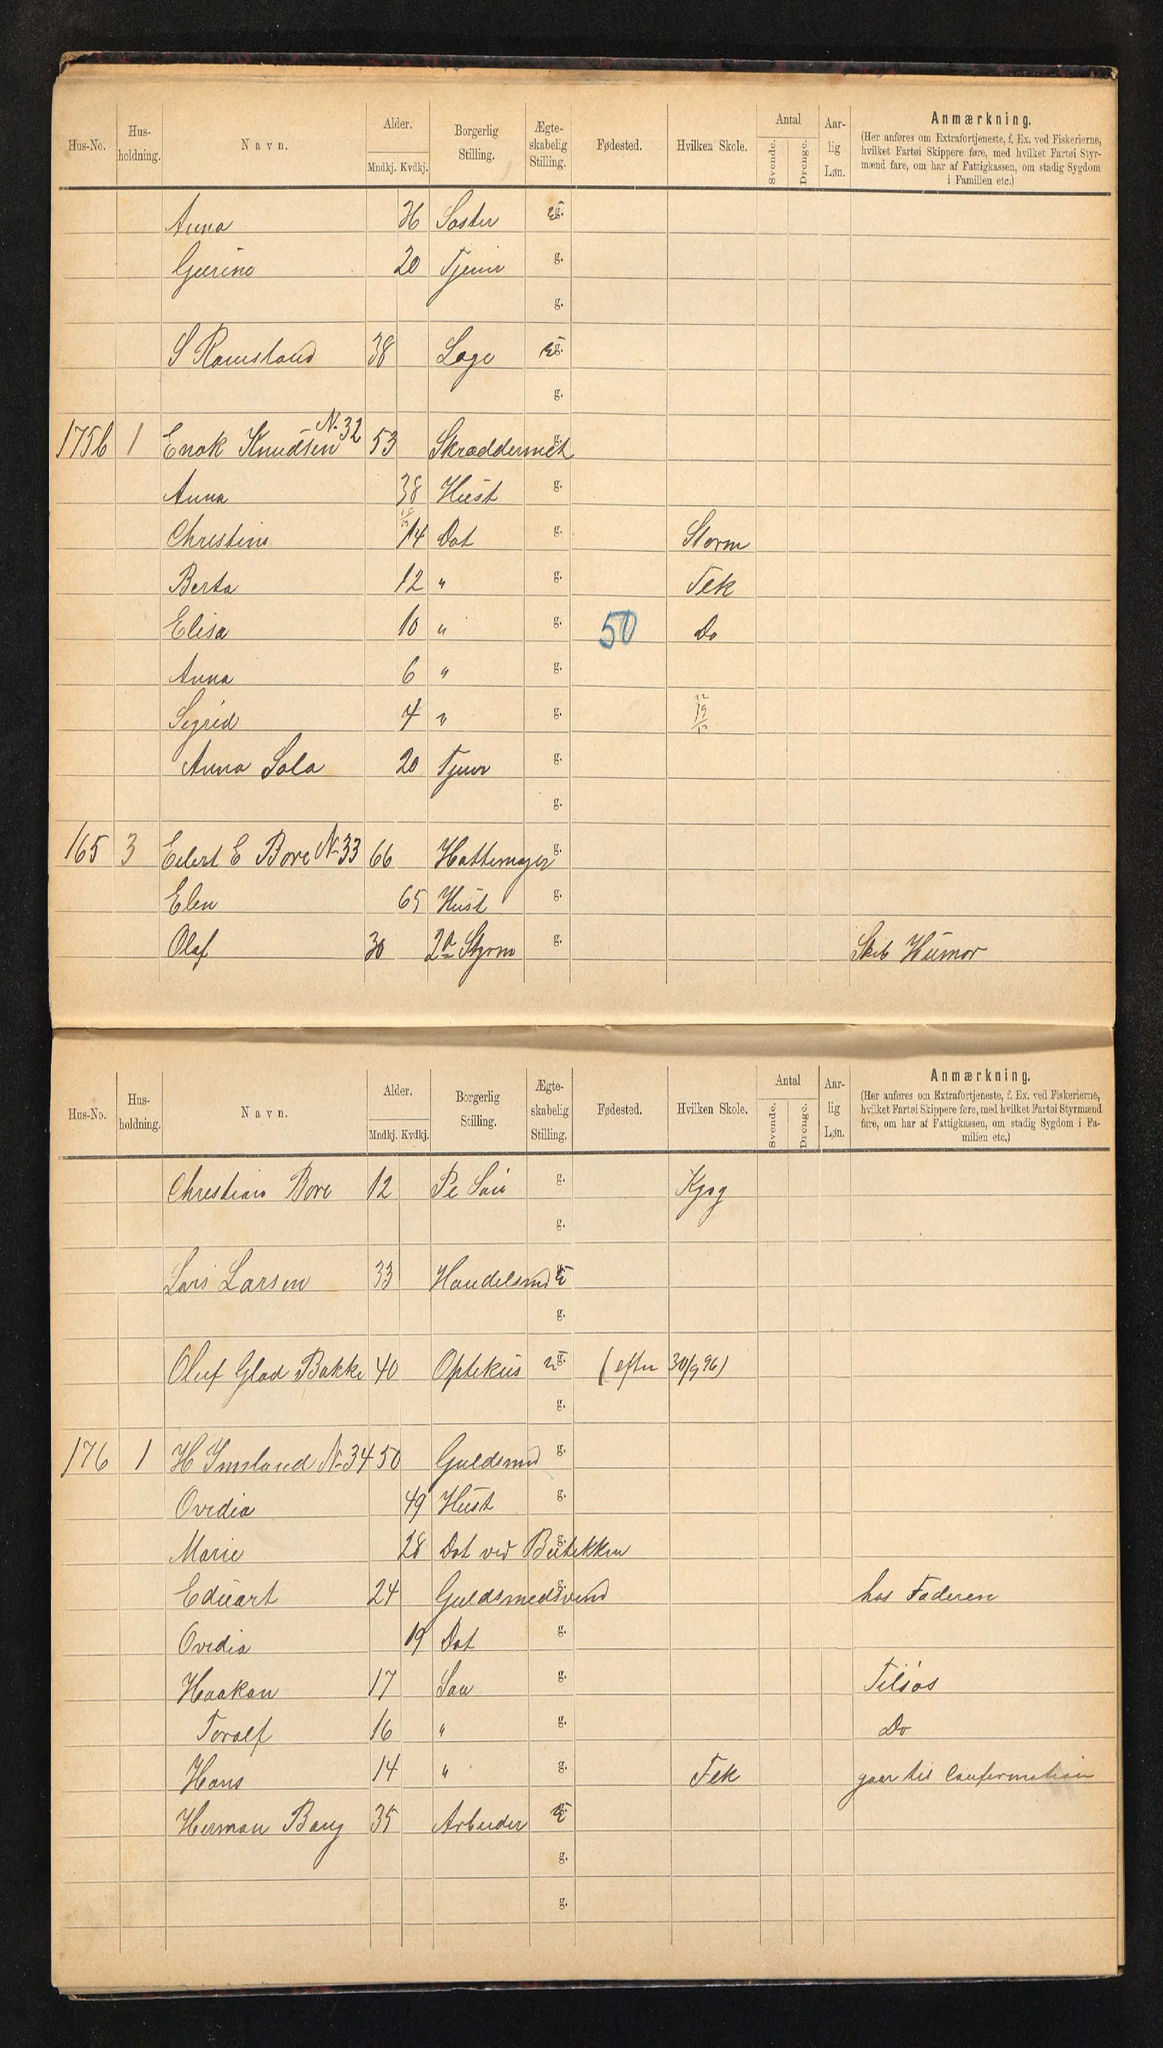 Hus-No. Hus-holdning. Navn. Alder. Mndkj. Kvdkj. Borgerlig Stilling. Ægte-skabelig Stilling. Fødested. Hvilken Skole. Antal Svende. Drenge. Aar-lig Løn. Anmærkning.
(Her anføres om Extrafortjeneste, f. Ex. ved Fiskerierne,
hvilket Fartøi Skippere føre, med hvilket Fartøi Styr-
mænd fare, om har af Fattigkassen, om stadig Sygdom
i Familien etc.)
Anna 36 Søster g.
Gurine 20 Tjener g.
g.
S Ramsland 38 Loge g.
g.
175b 1 Enok Knudsen N. 32 53 Skræddermst g.
Anna 38 Hust g.
Christine 14 Dat g. Storm
Berta 12 " g. Fek
Elisa 10 " g. 50 Do
Anna 6 " g.
Sigrid 4 " g.
Anna Sola 20 Tjener g.
g.
165 3 Eilert E Bore N. 33 66 Hattemager g.
Elen 65 Hust g.
Olaf 30 2n Styrm g. Skib Humor
Hus-No. Hus-holdning. Navn. Alder. Mndkj. Kvdkj. Borgerlig Stilling. Ægte-skabelig Stilling. Fødested. Hvilken Skole. Antal Svende. Drenge. Aar-lig Løn. Anmærkning.
(Her anføres om Extrafortjeneste, f. Ex. ved Fiskerierne,
hvilket Fartøi Skippere føre, med hvilket Fartøi Styrmænd
fare, om har af Fattigkassen, om stadig Sygdom i Fa-
milien etc.)
Christian Bore 12 Pl Søn g. Kjøg
g.
Lars Larsen 33 Handelsmd
g.
Oluf Glad Bakke 40 Optikus g. (efter 30/9 96)
g.
176 1 H Imsland N. 34 50 Guldsmed g.
Ovidia 49 Hust g.
Marie 28 Dat ved Butikken g.
Eduart 24 Guldsmedsvend g. hos Faderen
Ovidia 19 Dat g.
Haakon 17 Søn g. Tilsøs
Toralf 16 " g. Do
Hans 14 " g. Fek gaar til Confirmation
Herman Bang 35 Arbeider
g.
g.